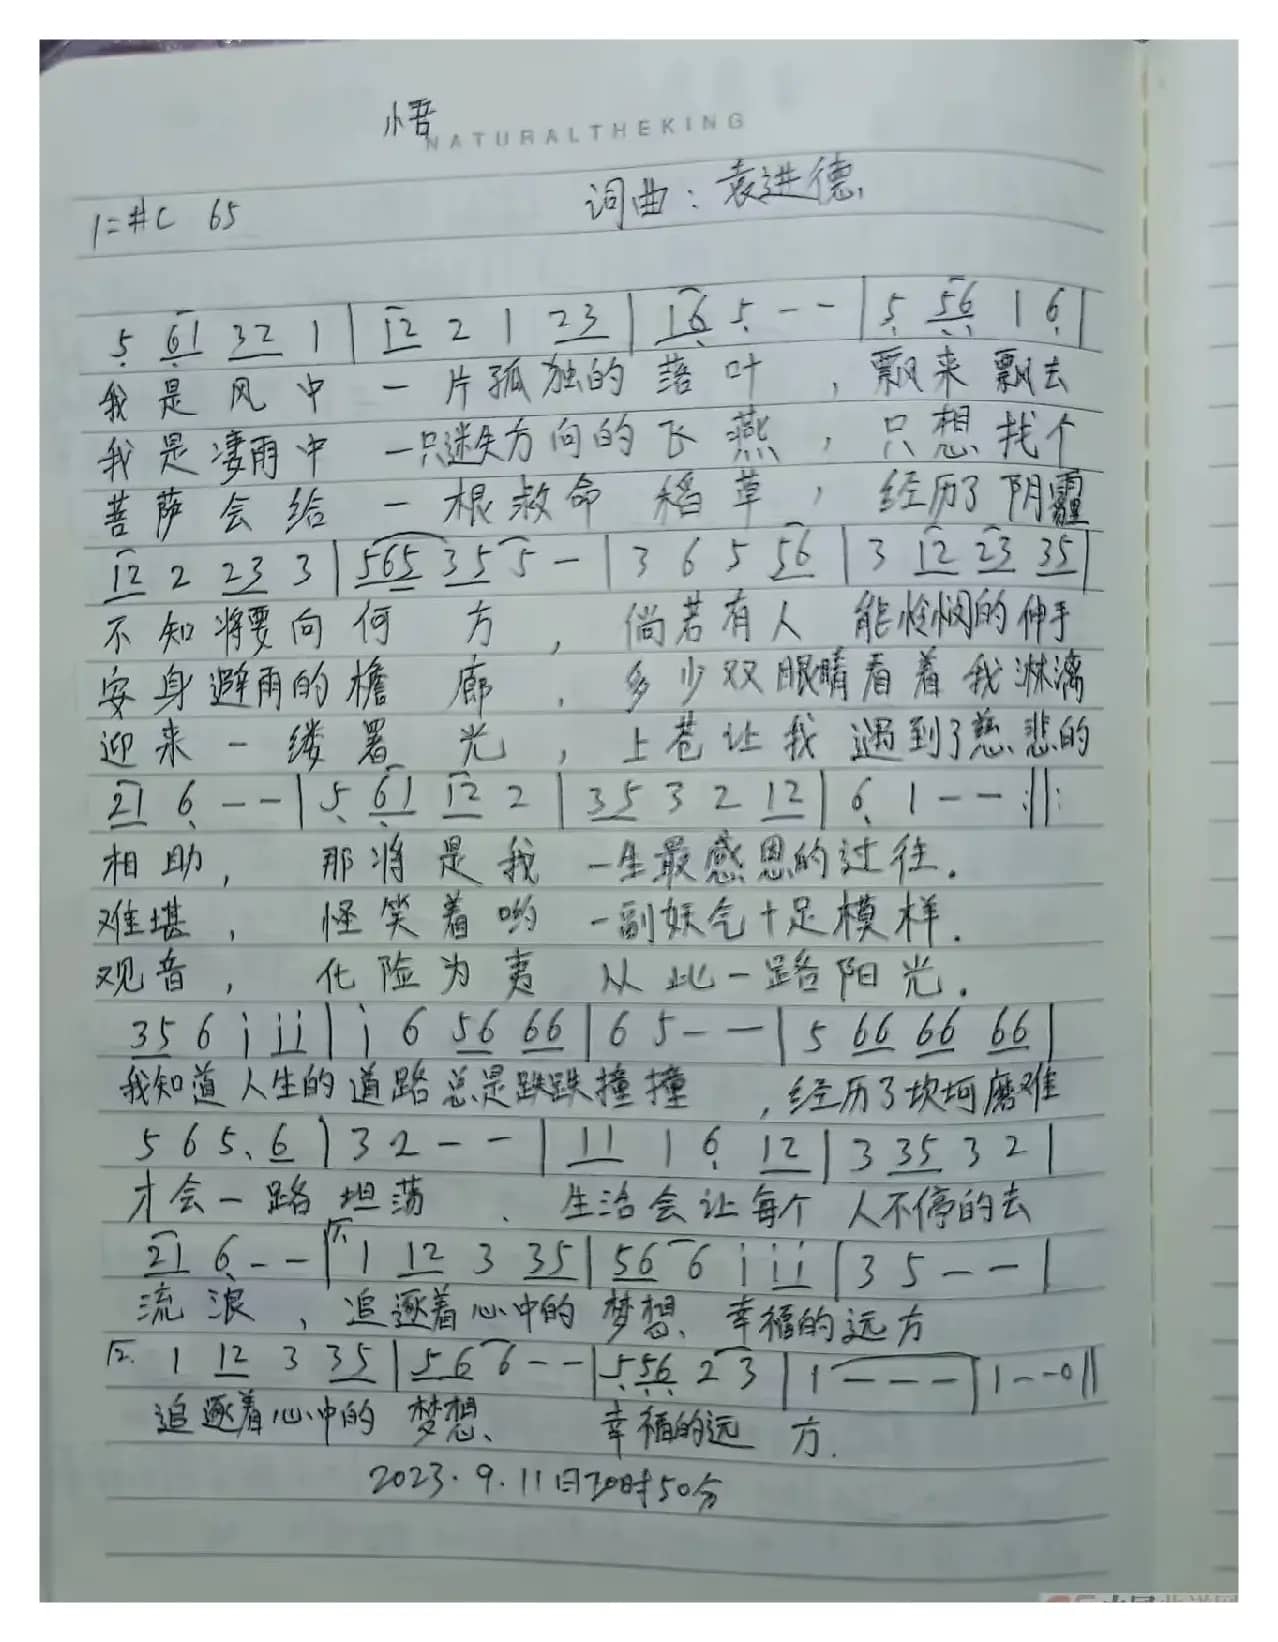 悟
NATURALTHEKING
词曲：袁进德
1=#C 65
5 61 32 1 | 12 2 1 23 | 16 5 - - | 5 56 1 6 |
我是风中 一片孤独的落叶，飘来飘去
我是凄雨中 一只迷失方向的飞燕，只想找个
菩萨会给 一根救命稻草，经历了阴霾
12 2 23 3 | 565 35 5 - | 3 6 5 56 | 3 12 23 35 |
不知将要向何方，倘若有人 能怜悯的伸手
安身避雨的檐廊，多少双眼睛看着我淋漓
迎来一缕署光，上苍让我 遇到了慈悲的
21 6 - - | 5 61 12 2 | 35 3 2 12 | 6 1 - - :||:
相助，那将是我 一生最感恩的过往.
难堪，怪笑着哟 一副妖气十足模样.
观音，化险为夷 从此一路阳光.
35 6 i ii | i 6 56 66 | 6 5 - - | 5 66 66 66 |
我知道人生的道路总是跌跌撞撞，经历了坎坷磨难
5 6 5. 6 | 3 2 - - | 11 1 6 12 | 3 35 3 2 |
才会一路坦荡、生活会让每个 人不停的去
21 6 - - | 1. 1 12 3 35 | 56 6 i ii | 3 5 - - |
流浪，追逐着心中的梦想、幸福的远方
2. 1 12 3 35 | 56 6 - - | 556 2 3 | 1 - - - | 1 - - 0 ||
追逐着心中的 梦想、幸福的远方.
2023.9.11日20时50分